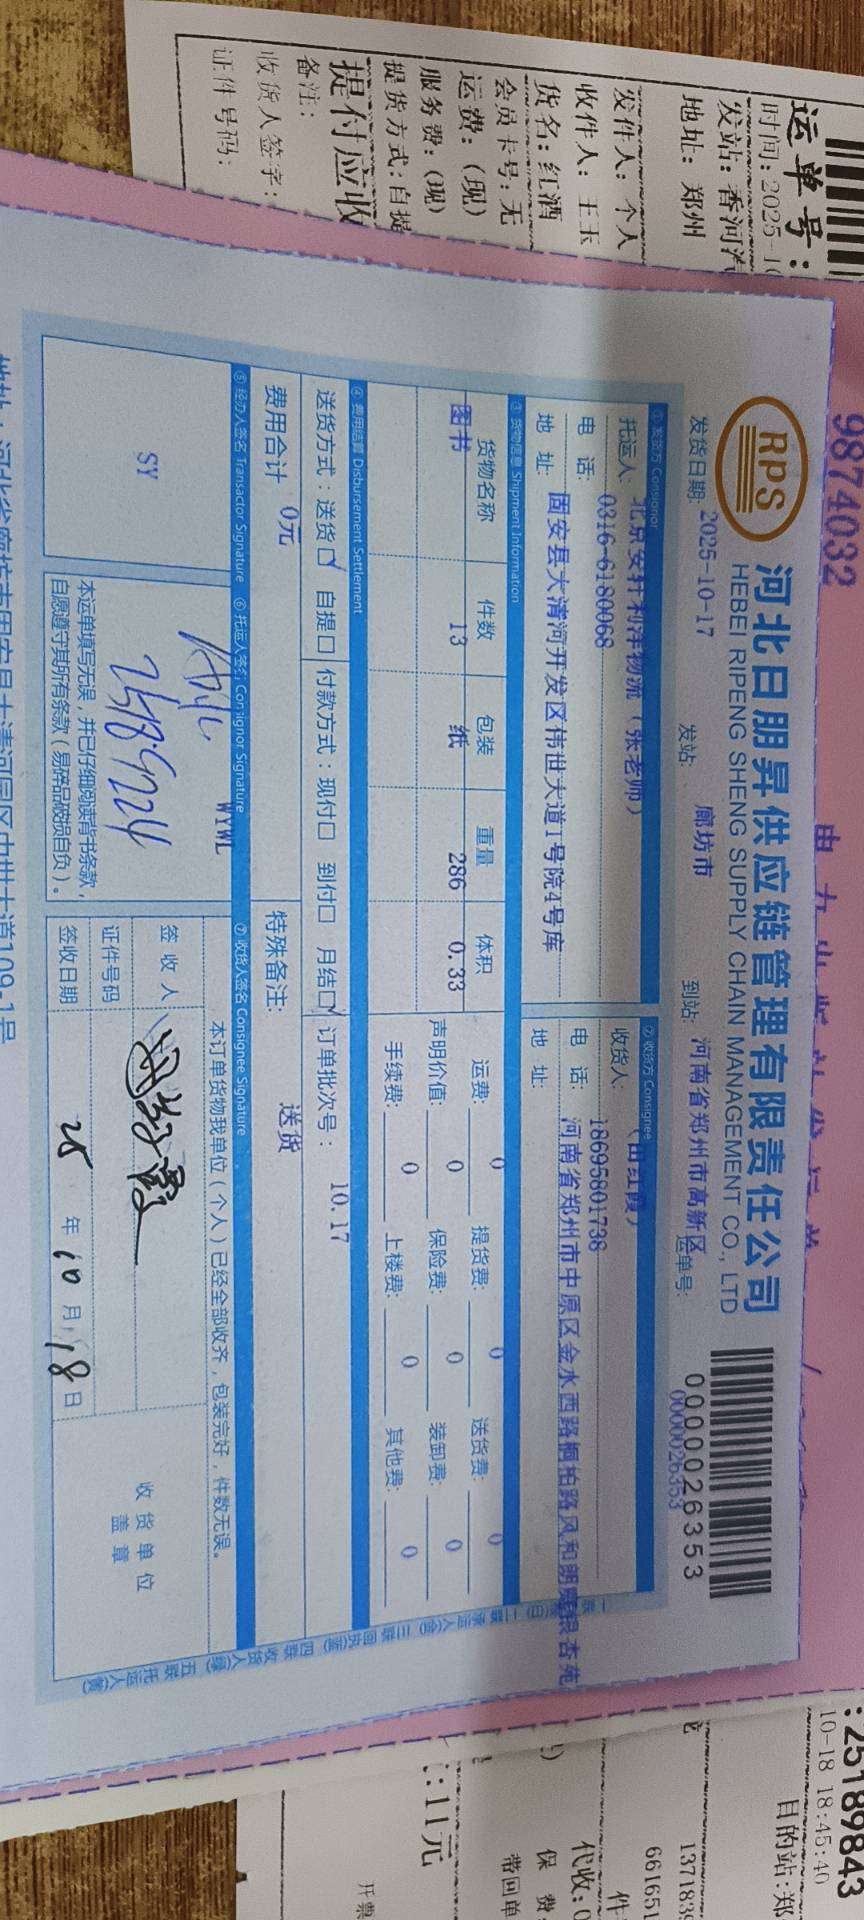 9874032
RPS
河北日朋昇供应链管理有限责任公司
HEBEI RIPENG SHENG SUPPLY CHAIN MANAGEMENT CO., LTD
0000026353
0000026353
发货日期: 2025-10-17 发站: 廊坊市 到站: 河南省郑州市高新区 运单号:
①发货方 Consignor
托运人: 北京安轩利洋物流（张老师）
电 话: 0316-6180068
地 址: 固安县大清河开发区伟世大道1号院4号库
②收货方 Consignee
收货人: （田红霞）
电 话: 18695801738
地 址: 河南省郑州市中原区金水西路桐柏路风和朗庭银杏苑
③货物信息 Shipment Information
货物名称 件数 包装 重量 体积
图书 13 纸 286 0.33
运费: 0 提货费: 0 送货费: 0
声明价值: 0 保险费: 0 装卸费: 0
手续费: 0 上楼费: 0 其他费: 0
④费用结算 Disbursement Settlement
送货方式：送货☑ 自提☐ 付款方式：现付☐ 到付☐ 月结☑ 订单批次号： 10.17
费用合计 0元 特殊备注: 送货
⑤经办人签名 Transactor Signature ⑥托运人签名 Consignor Signature ⑦收货人签名 Consignee Signature
SY
WYWL
本运单填写无误，并已仔细阅读背书条款，
自愿遵守其所有条款（易碎品破损自负）。
本订单货物我单位（个人）已经全部收齐，包装完好，件数无误。
签 收 人
证件号码
签收日期 25 年 10 月 18 日
收 货 单 位
盖 章
运单号：
:25189843
时间: 2025-10
10-18 18:45:40
发站: 香河汽
目的站:郑
地址: 郑州
发件人: 个人
137183
收件人: 王玉
661651
货名: 红酒
件
会员卡号: 无
代收:0
运费: (现)
保 费:
服务费: (现)
带回单
提货方式: 自提
提付应收
:11元
备注:
收货人签字:
开票
证件号码: